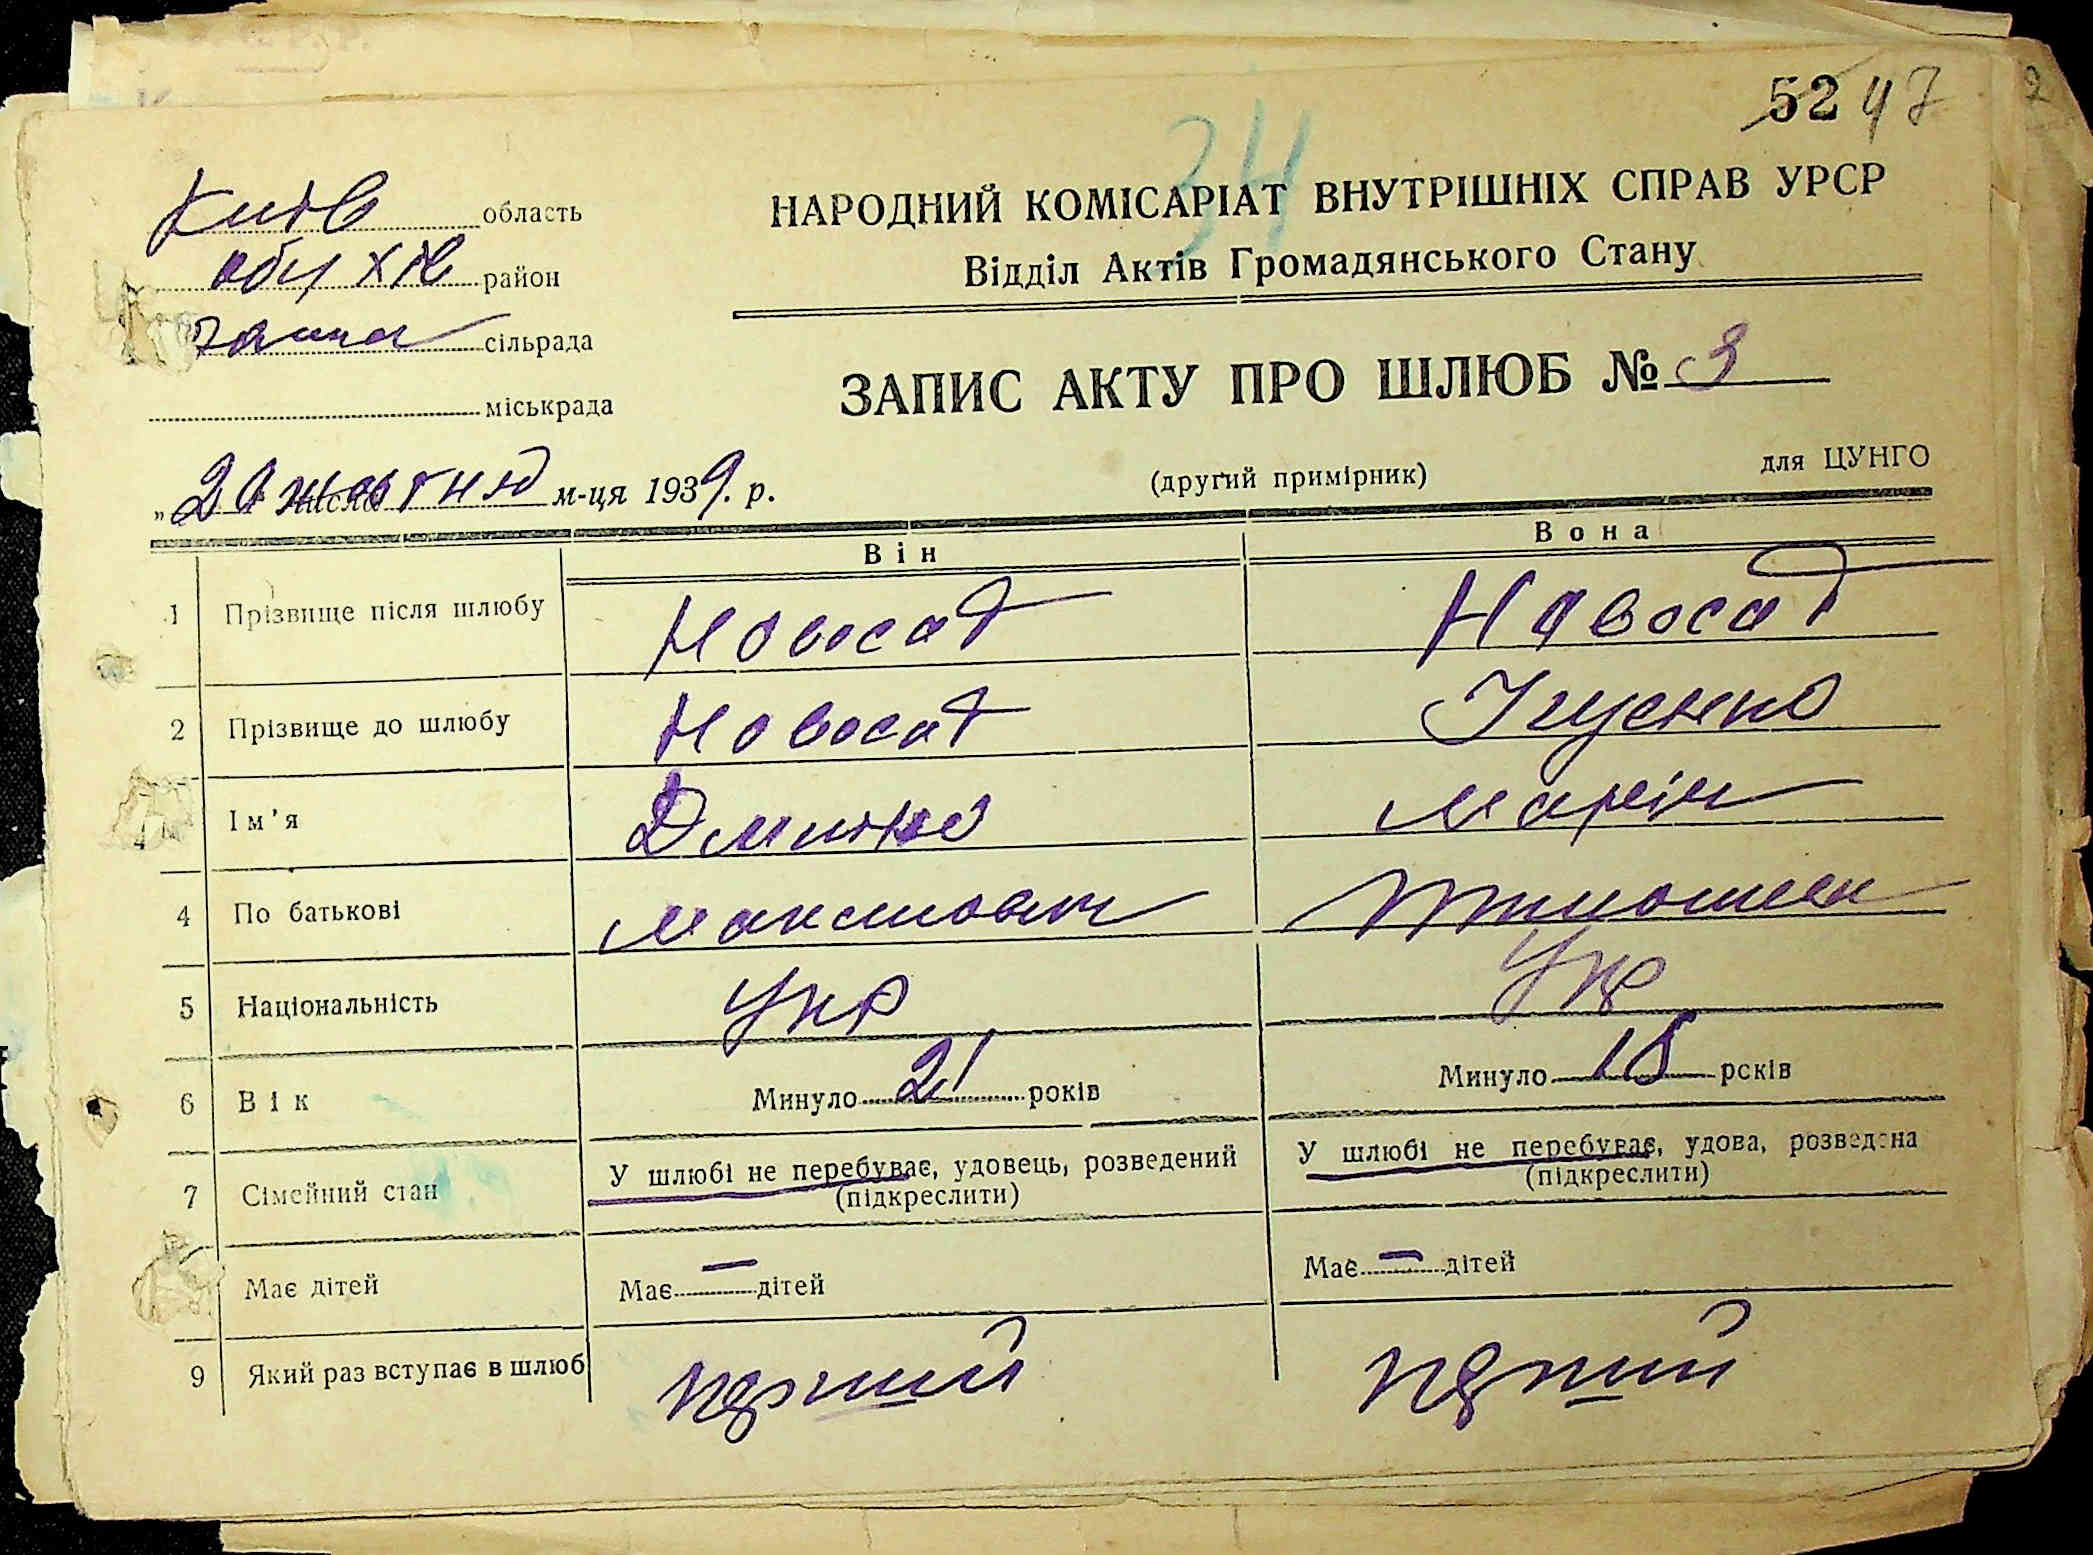 52 47
34
Київ область
обух їв район
сільрада
міськрада
НАРОДНИЙ КОМІСАРІАТ ВНУТРІШНІХ СПРАВ УРСР
Відділ Актів Громадянського Стану
ЗАПИС АКТУ ПРО ШЛЮБ № 3
„20 жовтня м-ця 1939. р.
(другий примірник)
для ЦУНГО
Він
Вона
1 Прізвище після шлюбу Новосад Новосад
2 Прізвище до шлюбу Новосад
Ім'я Дмитро Марія
4 По батькові Максимович
5 Національність Укр Укр
6 Вік Минуло 21 років Минуло 18 років
7 Сімейний стан У шлюбі не перебуває, удовець, розведений У шлюбі не перебуває, удова, розведена
(підкреслити) (підкреслити)
Має дітей Має — дітей Має — дітей
9 Який раз вступає в шлюб перший перший